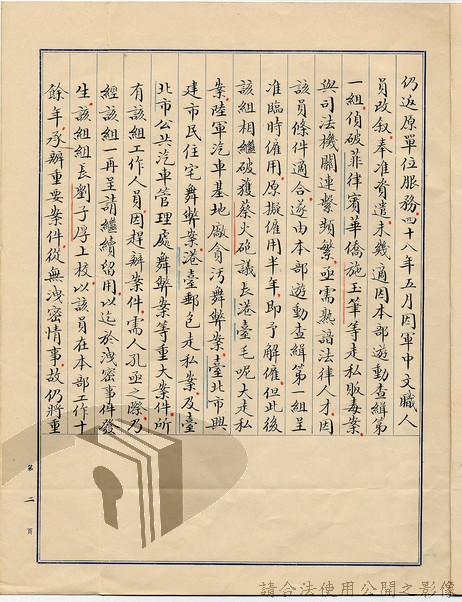 仍返原單位服務四十八年五月因軍中文職人
員改敘奉准資遣未幾適因本部遊動查緝第
一組偵破菲律賓華僑施玉筆等走私販毒案
與司法機關連繫頻繁亟需熟諳法律人才因
該員條件適合遂由本部遊動查緝第一組呈
准臨時僱用原擬僱用半年即予解僱但此後
該組相繼破獲蔡火砲議長港臺毛呢大走私
案陸軍汽車基地廠貪污舞弊案臺北市興
建市民住宅舞弊案港臺郵包走私案及臺
北市公共汽車管理處舞弊案等重大案件所
有該組工作人員因趕辦案件需人孔亟之際乃
經該組一再呈請繼續留用以迄於洩密事件發
生該組組長劉子厚上校以該員在本部工作十
餘年承辦重要案件從無洩密情事故仍將重
第二頁
請合法使用公開之影像